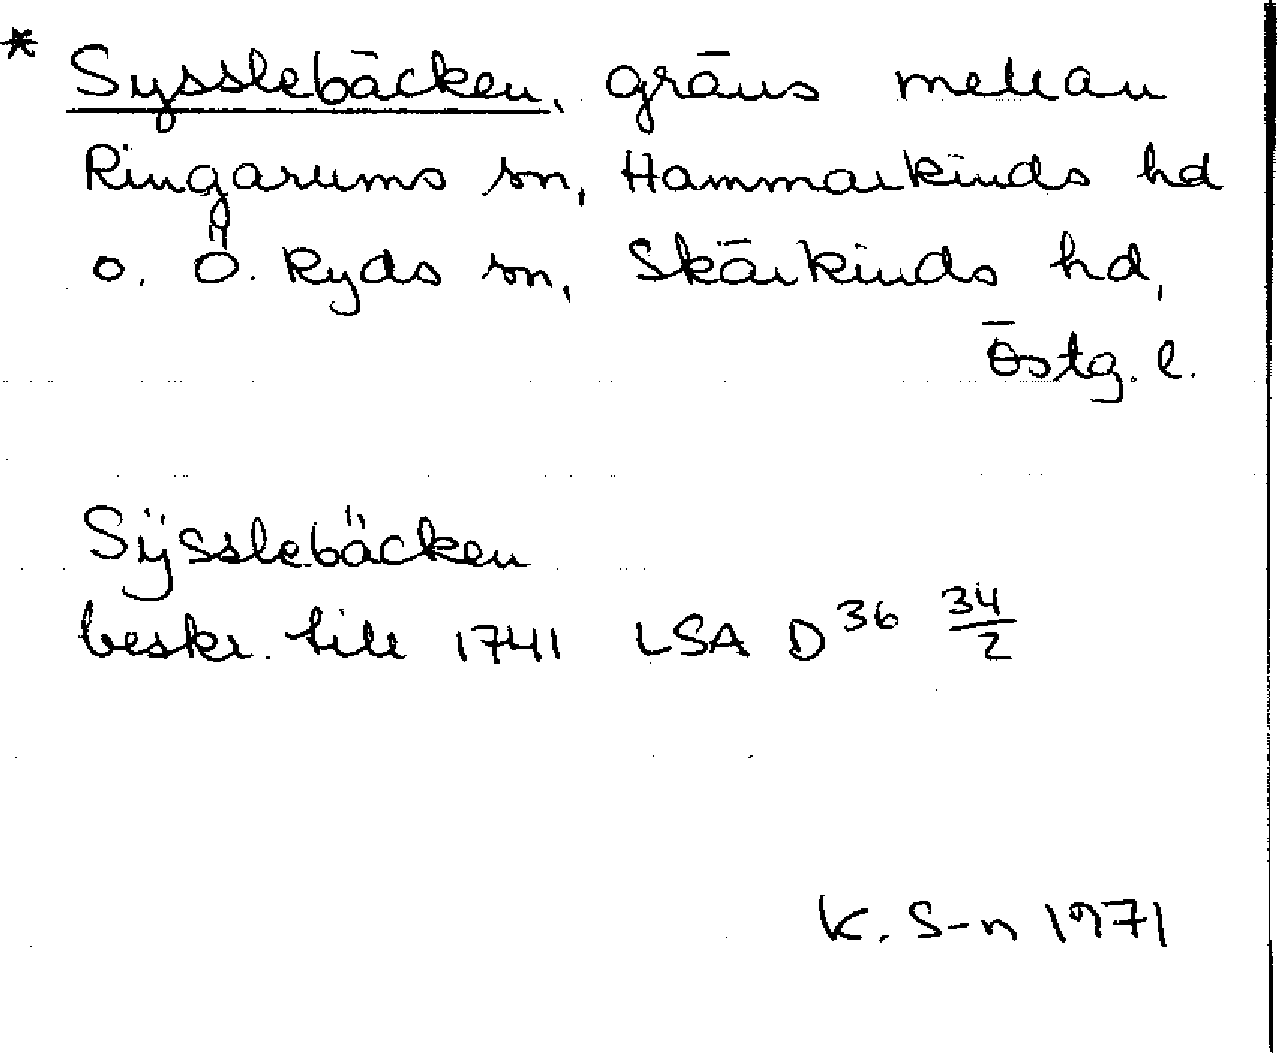 * Sysslebäcken, gräns mellan
Ringarums sn, Hammarkinds hd
o. Ö. Ryds sn, Skärkinds hd,
Östg. l.
Sÿsslebäcken
beskr. till 1741 LSA D 36 34/2
K. S-n 1971